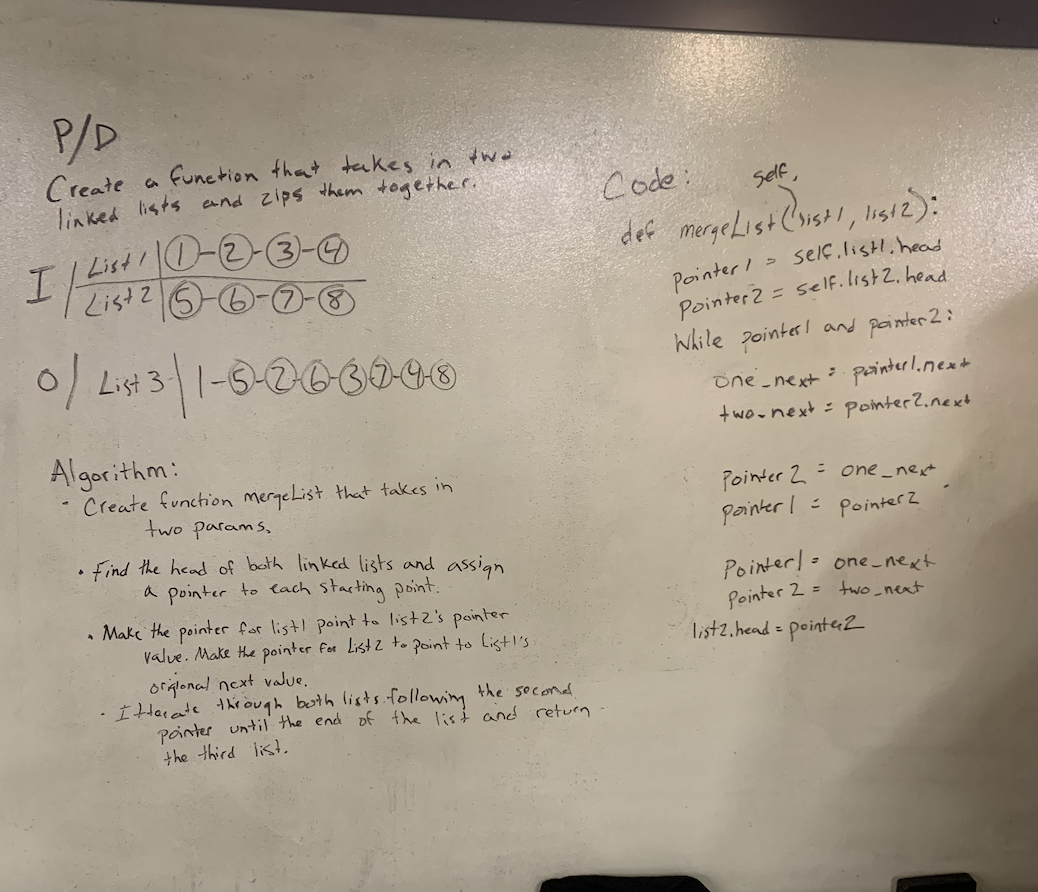 P/D
Create a function that takes in two
linked lists and zips them together.
I / List 1 | 1-2-3-4
List 2 | 5-6-7-8
O / List 3 | 1-5-2-6-3-7-4-8
Algorithm:
- Create function mergeList that takes in
two params.
• Find the head of both linked lists and assign
a pointer to each starting point.
• Make the pointer for list1 point to list2's pointer
value. Make the pointer for List2 to point to List1's
origional next value.
- Itterate through both lists following the second
pointer until the end of the list and return
the third list.
Code:
self,
def mergeList(list1, list2):
Pointer1 = self.list1.head
Pointer2 = self.list2.head
While pointer1 and pointer2:
one_next = pointer1.next
two_next = pointer2.next
Pointer2 = one_next
pointer1 = pointer2
Pointer1 = one_next
Pointer2 = two_next
list2.head = pointer2